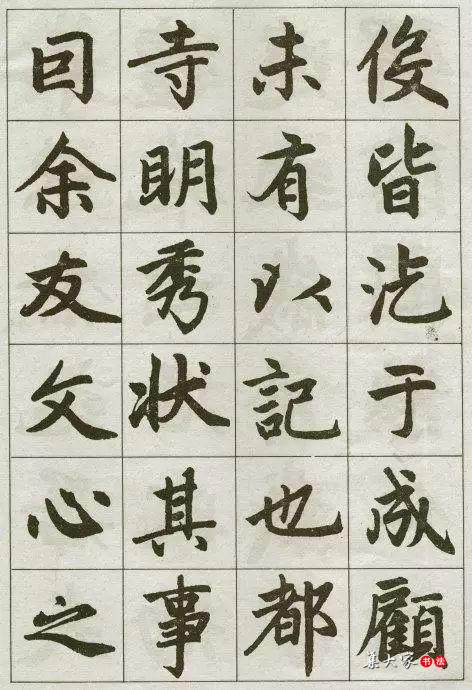 俊皆汔于成顧
未有以記也都
寺明秀狀其事
囙余友文心之
集大家书法